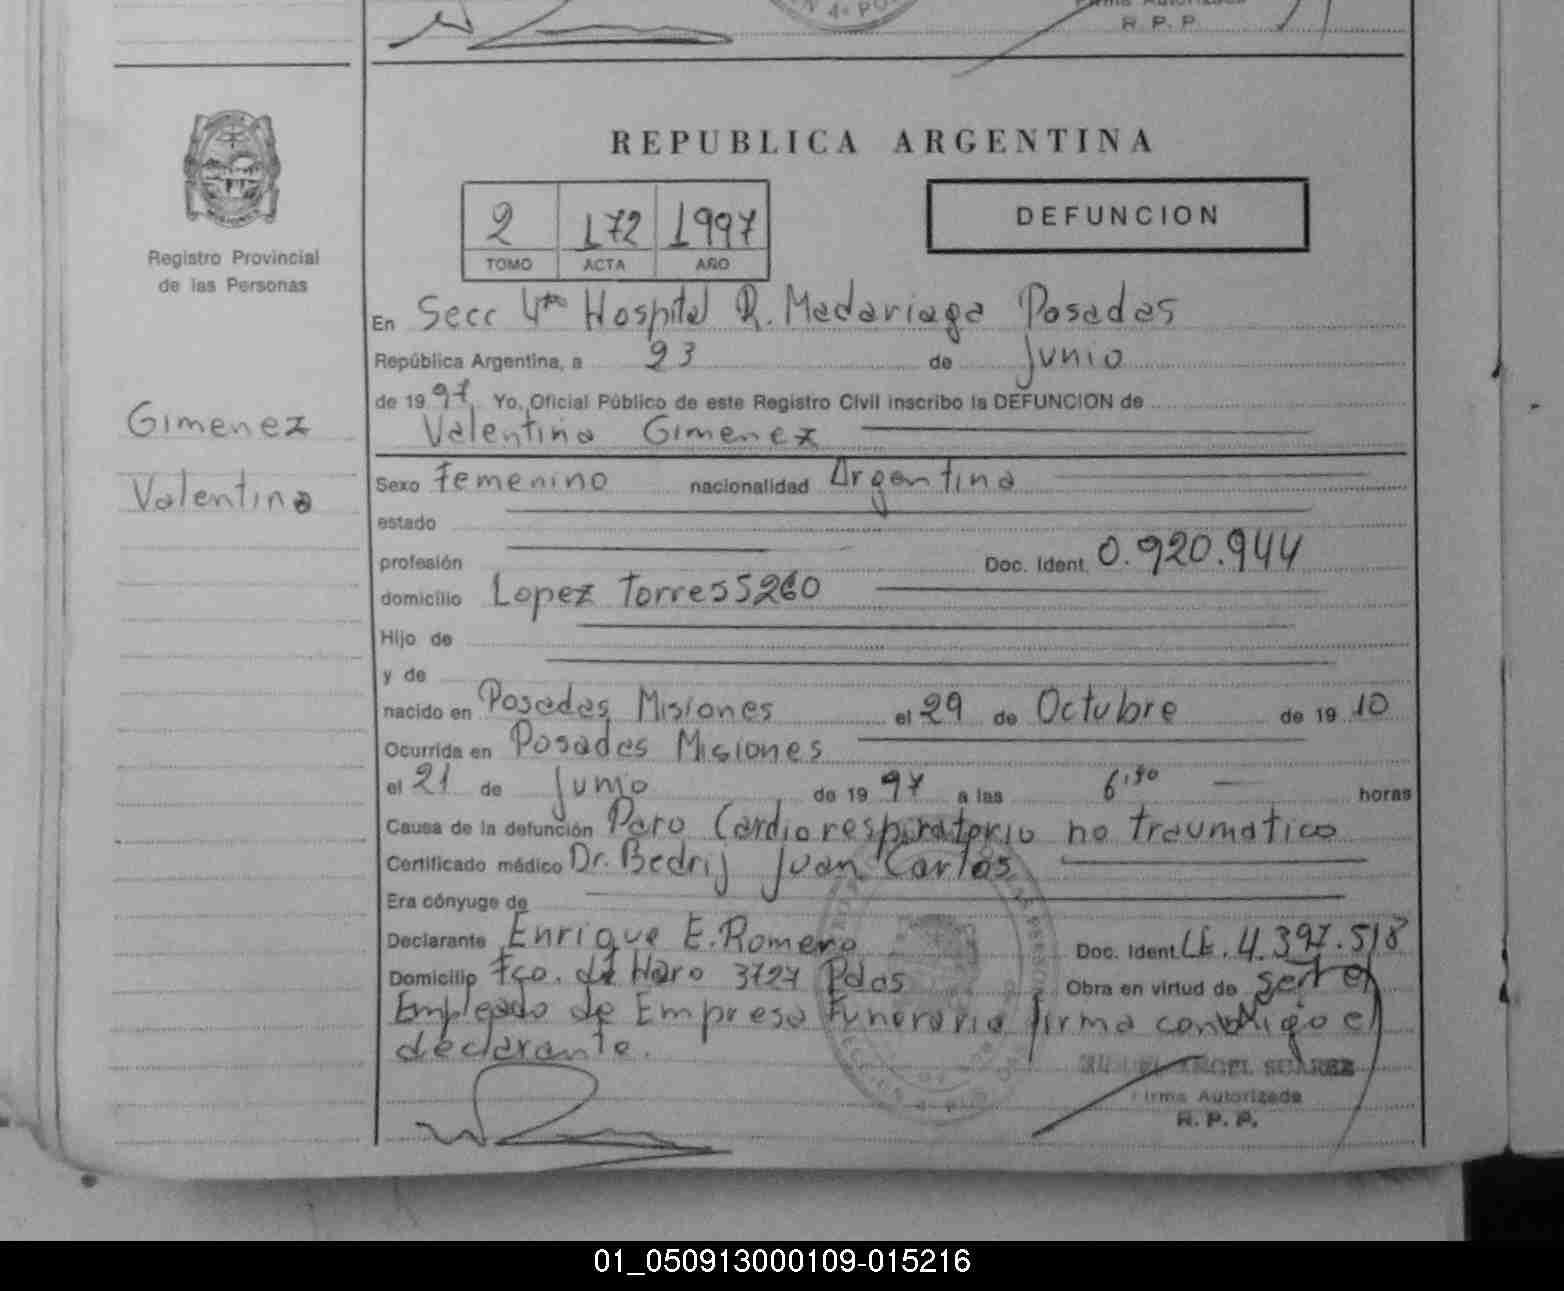 Firma Autorizada
R. P. P.
Registro Provincial
de las Personas
Gimenez
Valentina
REPUBLICA ARGENTINA
2 172 1997
TOMO ACTA AÑO
DEFUNCION
En Secc 4ta Hospital R. Madariaga Posadas
República Argentina, a 23 de Junio
de 1997 Yo, Oficial Público de este Registro Civil inscribo la DEFUNCION de
Valentina Gimenez
Sexo Femenino nacionalidad Argentina
estado
profesión Doc. Ident. 0.920.944
domicilio Lopez Torres 5260
Hijo de
y de
nacido en Posadas Misiones el 29 de Octubre de 1910
Ocurrida en Posadas Misiones
el 21 de Junio de 1997 a las horas
Causa de la defunción Paro Cardiorespiratorio no traumatico
Certificado médico Dr. Bedrij Juan Carlos
Era cónyuge de
Declarante Enrique E. Romero Doc. Ident. LE. 4.397.518
Domicilio Fco. de Haro 3727 Pdas Obra en virtud de ser el
Empleado de Empresa Funeraria firma conmigo el
declarante.
MIGUEL ANGEL SUAREZ
Firma Autorizada
R. P. P.
01_050913000109-015216